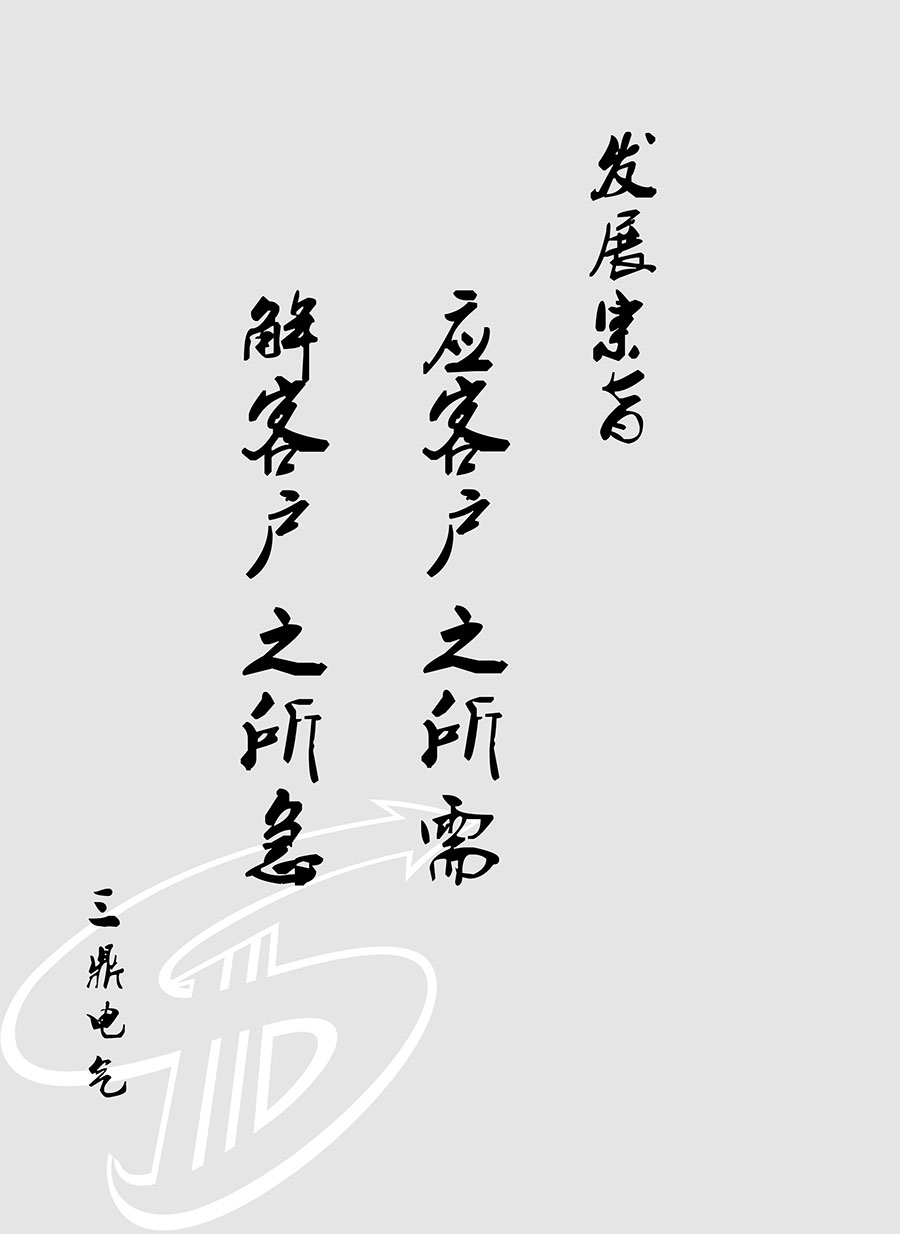 发展宗旨
应客户之所需
解客户之所急
三鼎电气